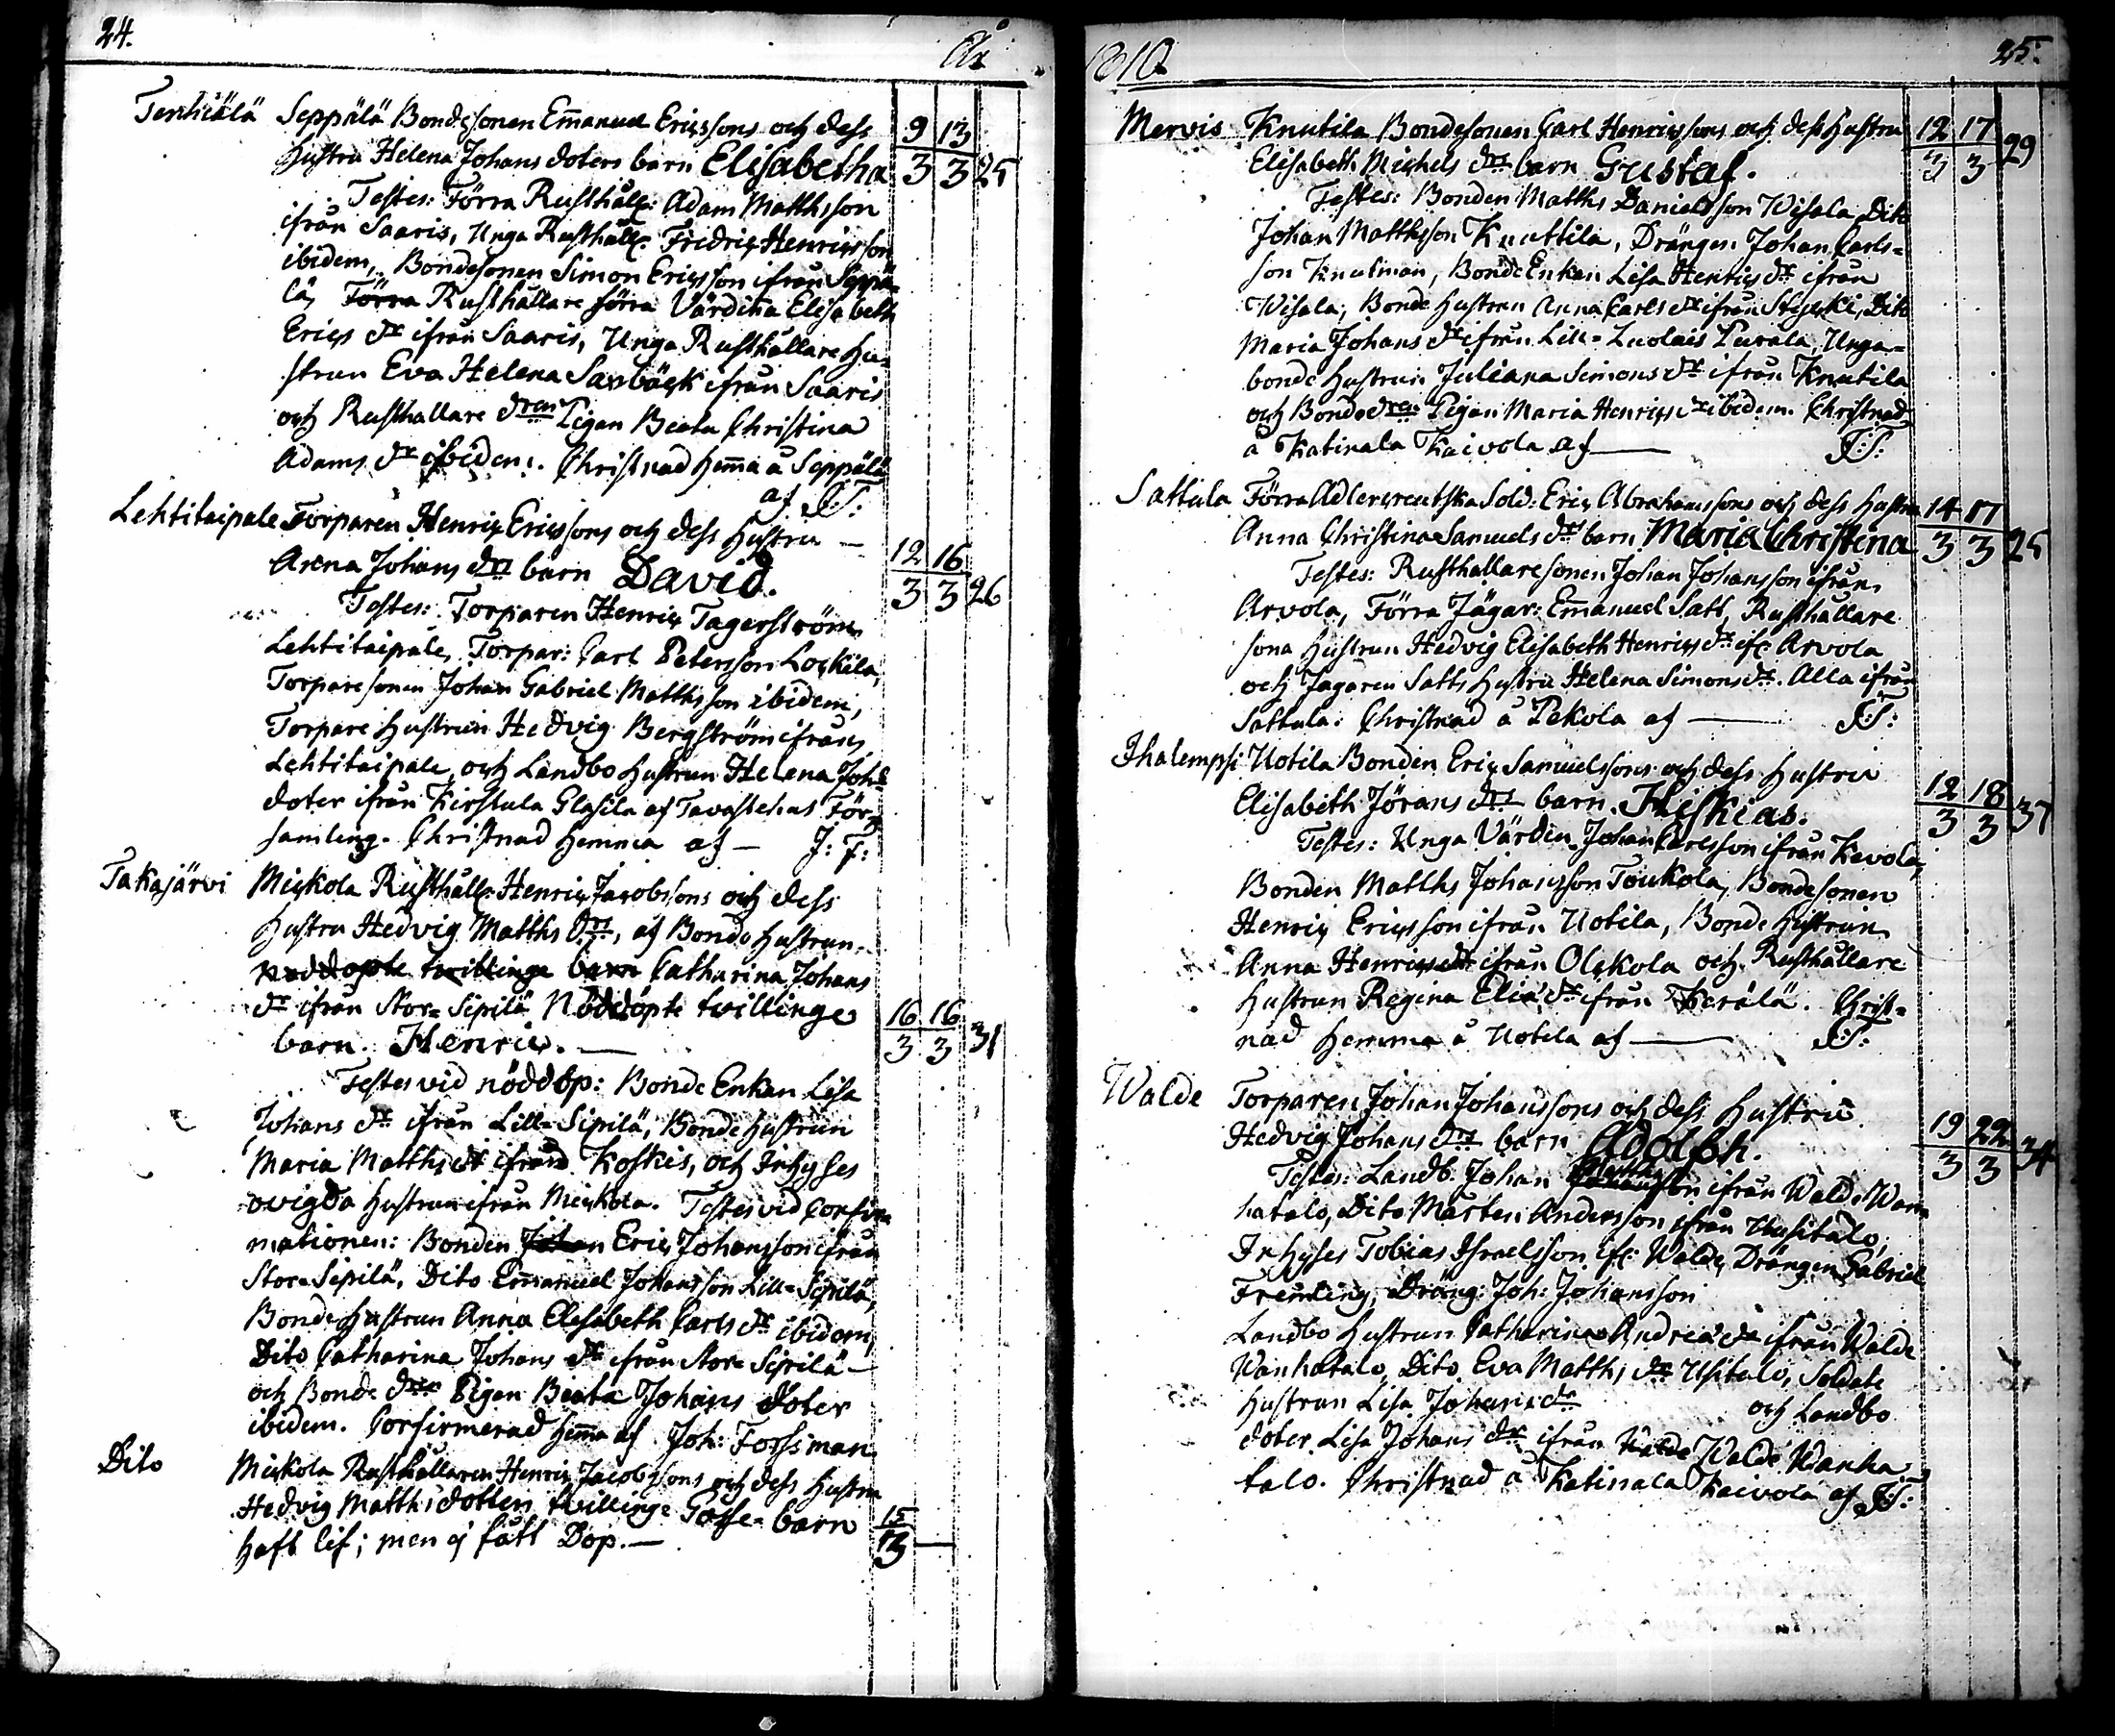 24.
År
Tenhiälä Seppälä Bondesonen Em̅anuel Ericssons och dess
hustru Helena Johans doters barn Elisabetha
9 13
3 3 25
Testes: Förra Rusthåll: Adam Mathsson
ifrån Saaris, Unga Rusthåll: Fredric Henricsson
ibidem, Bondesonen Simon Ericsson ifrån Seppä-
lä, Förra Rusthållare förra Värdina Elisabeth
Erics dr ifrån Saaris, Unga Rusthållare hu-
strun Eva Helena Saxbäck ifrån Saaris
och Rusthållare dren Pigan Beata Christina
Adams dr ibidem. Christnad hem̅a å Seppälä
af J.F:
Lehtitaipale Torparen Henric Ericssons och dess hustru —
Anna Johans drs barn David.
12 16
3 3 26
Testes: Torparen Henric Tagerström
Lehtitaipale, Torpar: Carl Petersson Lockila,
Torparesonen Johan Gabriel Mathsson ibidem,
Torpare hustrun Hedvig Bergström ifrån
Lehtitaipale, och Landbo hustrun Helena Joh:s
doter ifrån Kirstula Glasila af Tavastehus För-
samling. Christnad hemma af — J: F:
Takajärvi Mickola Rusthåll: Henric Jacobssons och dess
hustru Hedvig Matths drs, af Bonde hustrun
nöddöpte twillinge barn Catharina Johans
dr ifrån Stor-Sipilä Nöddöpte tvillinge
barn. Henric. —
16 16
3 3 31
Testes vid nöddop: Bonde Enkan Lisa
Johans dr ifrån Lill-Sipilä, Bonde hustrun
Maria Matths dr ifrån Koskis, och Inhyses
ovigda hustrun ifrån Mickola. Testes vid Confir-
mationen: Bonden Johan Eric Johansson ifrån
Stor-Sipilä, Dito Emanuel Johansson Lill-Sipilä,
Bonde hustrun Anna Elisabeth Carls dr ibidem,
Dito Catharina Johans dr ifrån Stor-Sipilä —
och Bonde dren Pigan Beata Johans doter
ibidem. Confirmerad hem̅a af Joh: Forsman
Dito Mickola Rusthållaren Henric Jacobssons och dess hustru
Hedvig Matths dotters tvillinge Gosse-barn
haft lif; men ej fått Dop. —
15
3 —
1810.
25.
Mervis Knutila Bondesonen Carl Henricssons och dess hustru
Elisabeth Michels drs barn Gustaf.
12 17
3 3 29
Testes: Bonden Matths Danielsson Wisala, Dito
Johan Mattsson Knuttila, Drängen Johan Carls-
son Knutman, Bonde Enkan Lisa Henrics dr ifrån
Wisala, Bonde hustrun Anna Carls dr ifrån, Dito
Maria Johans dr ifrån Lill-Luolais Purala, Unga-
bonde hustrun Juliana Simons dr ifrån Knutila
och Bonde dren Pigan Maria Henrics dr ibidem. Christnad
å Katinala Kaivola af — J:F:
Sattula Förra Adlercreutska Sold: Eric Abrahamssons och dess hustru
Anna Christina Samuels drs barn Maria Christina
14 17
3 3 25
Testes: Rusthållaresonen Johan Johansson ifrån
Arvola, Förra Jägar: Em̅anuel Satt, Rusthållare
sona hustrun Hedvig Elisabeth Henrics dr ifr: Arvola
och Jägaren Satts hustru Helena Simons dr. Alla ifrån
Sattula: Christnad å Pekola af — J:F:
Ihalempi Uotila Bonden Eric Samuelssons och dess hustru
Elisabeth Jörans drs barn Hiskias.
12 18
3 3 37
Testes: Unga Värden Johan Carlsson ifrån Kevola,
Bonden Matths Johansson Toukola, Bondesonen
Henric Ericsson ifrån Uotila, Bonde hustrun
Anna Henrics dr ifrån Olckola och Rusthållare
hustrun Regina Elia dr ifrån Kerälä. Christ-
nad hemma å Uotila af — J:F:
Walde Torparen Johan Johanssons och dess hustru
Hedvig Johans drs barn Adolph.
19 22
3 3 34
Testes: Landb: Johan Matthsson ifrån Walde Wan-
hatalo, Dito Mårten Andersson ifrån Uusitalo,
Inhyses Tobias Israelsson ifr: Walde, Drängen Gabriel
Fremling, Dräng: Joh: Johansson
Landbo hustrun Catharina Andrea dr ifrån Walde
Wanhatalo, Dito Eva Matths dr Usitalo, Soldate
hustrun Lisa Johans dr och Landbo
doter Lisa Johans dr ifrån Walde Walde Wanha
talo. Christnad å Katinala Kaivola af J:F: